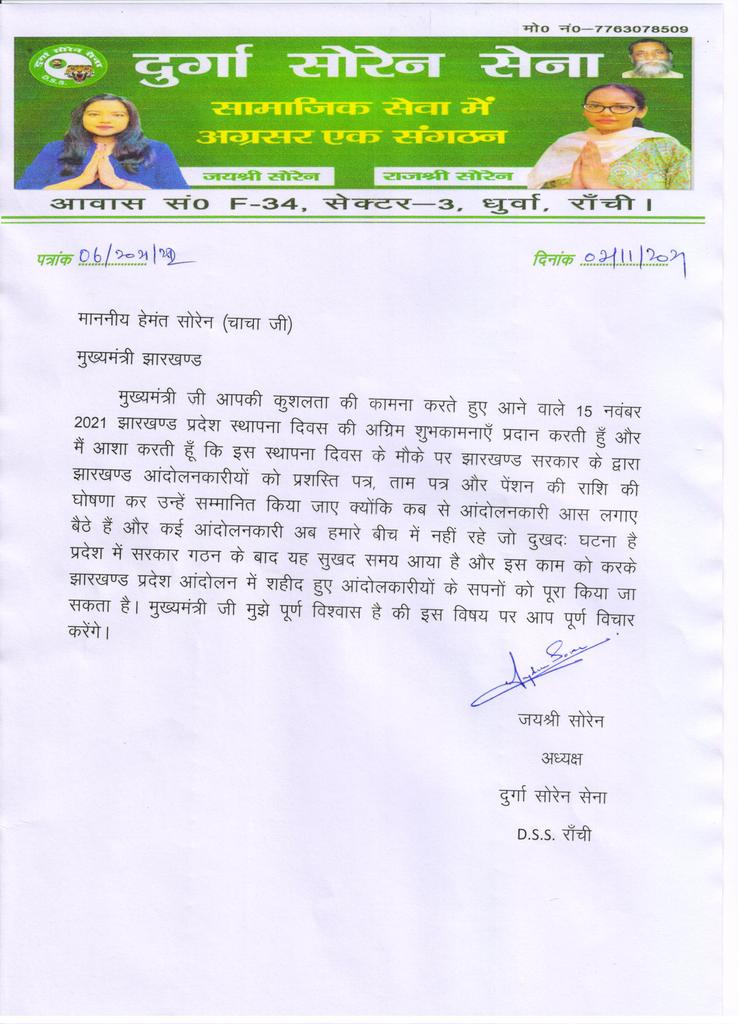 मो० नं०–7763078509
दुर्गा सोरेन सेना
दुर्गा सोरेन सेना
D.S.S.
सामाजिक सेवा में
अग्रसर एक संगठन
जयश्री सोरेन राजश्री सोरेन
आवास सं० F-34, सेक्टर–3, धुर्वा, राँची।
पत्रांक 06/2021/22 दिनांक 02/11/2021
माननीय हेमंत सोरेन (चाचा जी)
मुख्यमंत्री झारखण्ड
मुख्यमंत्री जी आपकी कुशलता की कामना करते हुए आने वाले 15 नवंबर
2021 झारखण्ड प्रदेश स्थापना दिवस की अग्रिम शुभकामनाएँ प्रदान करती हुँ और
मैं आशा करती हूँ कि इस स्थापना दिवस के मौके पर झारखण्ड सरकार के द्वारा
झारखण्ड आंदोलनकारीयों को प्रशस्ति पत्र, ताम पत्र और पेंशन की राशि की
घोषणा कर उन्हें सम्मानित किया जाए क्योंकि कब से आंदोलनकारी आस लगाए
बैठे हैं और कई आंदोलनकारी अब हमारे बीच में नहीं रहे जो दुखदः घटना है
प्रदेश में सरकार गठन के बाद यह सुखद समय आया है और इस काम को करके
झारखण्ड प्रदेश आंदोलन में शहीद हुए आंदोलकारीयों के सपनों को पूरा किया जा
सकता है। मुख्यमंत्री जी मुझे पूर्ण विश्वास है की इस विषय पर आप पूर्ण विचार
करेंगे।
जयश्री सोरेन
अध्यक्ष
दुर्गा सोरेन सेना
D.S.S. राँची